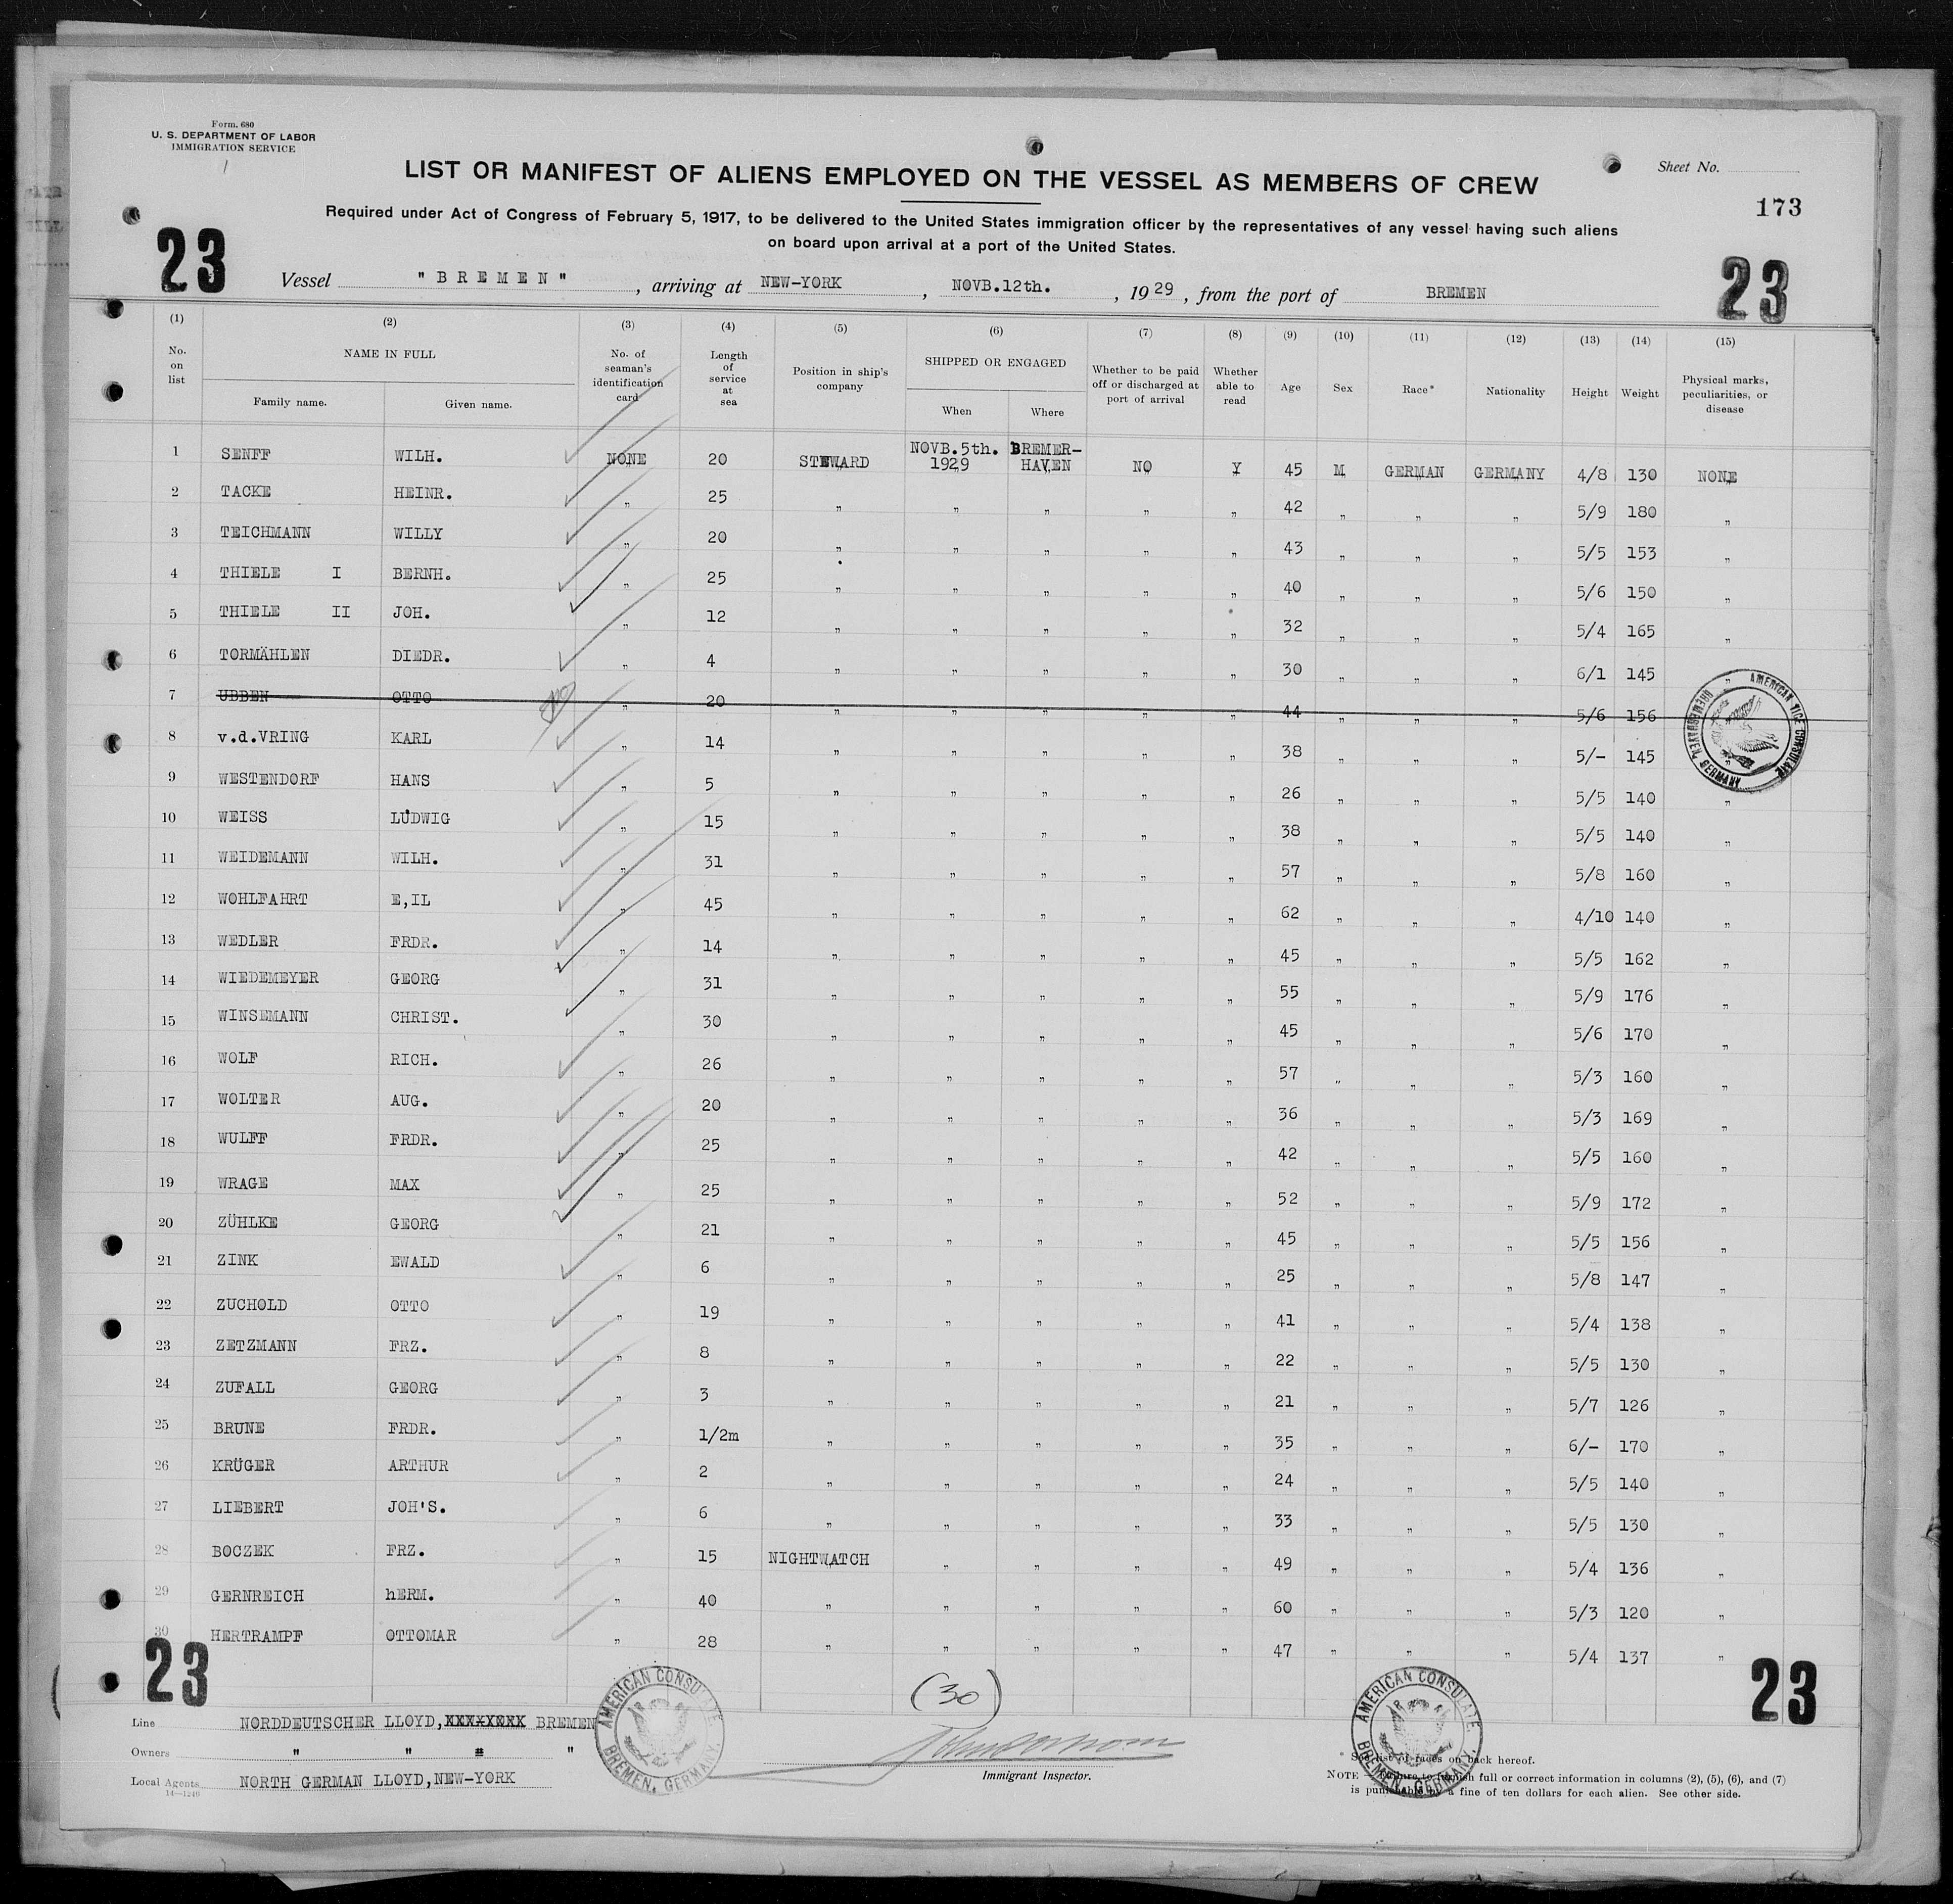 Form. 680
U. S. DEPARTMENT OF LABOR
IMMIGRATION SERVICE
LIST OR MANIFEST OF ALIENS EMPLOYED ON THE VESSEL AS MEMBERS OF CREW
Sheet No.
173
Required under Act of Congress of February 5, 1917, to be delivered to the United States immigration officer by the representatives of any vessel having such aliens
on board upon arrival at a port of the United States.
23
23
Vessel "BREMEN", arriving at NEW-YORK, NOVB.12th., 1929, from the port of BREMEN
(1) (2) (3) (4) (5) (6) (7) (8) (9) (10) (11) (12) (13) (14) (15)
No. on list NAME IN FULL Family name. Given name. No. of seaman's identification card Length of service at sea Position in ship's company SHIPPED OR ENGAGED When Where Whether to be paid off or discharged at port of arrival Whether able to read Age Sex Race* Nationality Height Weight Physical marks, peculiarities, or disease
1 SENFF WILH. NONE 20 STEWARD NOVB.5th. 1929 BREMER-HAVEN NO Y 45 M GERMAN GERMANY 4/8 130 NONE
2 TACKE HEINR. " 25 " " " " " 42 " " " 5/9 180 "
3 TEICHMANN WILLY " 20 " " " " " 43 " " " 5/5 153 "
4 THIELE I BERNH. " 25 " " " " " 40 " " " 5/6 150 "
5 THIELE II JOH. " 12 " " " " " 32 " " " 5/4 165 "
6 TORMÄHLEN DIEDR. " 4 " " " " " 30 " " " 6/1 145 "
7 UBBEN OTTO " 20 " " " " " 44 " " " 5/6 156 "
8 v.d.VRING KARL " 14 " " " " " 38 " " " 5/- 145 "
9 WESTENDORF HANS " 5 " " " " " 26 " " " 5/5 140 "
10 WEISS LUDWIG " 15 " " " " " 38 " " " 5/5 140 "
11 WEIDEMANN WILH. " 31 " " " " " 57 " " " 5/8 160 "
12 WOHLFAHRT E,IL " 45 " " " " " 62 " " " 4/10 140 "
13 WEDLER FRDR. " 14 " " " " " 45 " " " 5/5 162 "
14 WIEDEMEYER GEORG " 31 " " " " " 55 " " " 5/9 176 "
15 WINSEMANN CHRIST. " 30 " " " " " 45 " " " 5/6 170 "
16 WOLF RICH. " 26 " " " " " 57 " " " 5/3 160 "
17 WOLTER AUG. " 20 " " " " " 36 " " " 5/3 169 "
18 WULFF FRDR. " 25 " " " " " 42 " " " 5/5 160 "
19 WRAGE MAX " 25 " " " " " 52 " " " 5/9 172 "
20 ZÜHLKE GEORG " 21 " " " " " 45 " " " 5/5 156 "
21 ZINK EWALD " 6 " " " " " 25 " " " 5/8 147 "
22 ZUCHOLD OTTO " 19 " " " " " 41 " " " 5/4 138 "
23 ZETZMANN FRZ. " 8 " " " " " 22 " " " 5/5 130 "
24 ZUFALL GEORG " 3 " " " " " 21 " " " 5/7 126 "
25 BRUNE FRDR. " 1/2m " " " " " 35 " " " 6/- 170 "
26 KRÜGER ARTHUR " 2 " " " " " 24 " " " 5/5 140 "
27 LIEBERT JOH'S. " 6 " " " " " 33 " " " 5/5 130 "
28 BOCZEK FRZ. " 15 NIGHTWATCH " " " " 49 " " " 5/4 136 "
29 GERNREICH hERM. " 40 " " " " " 60 " " " 5/3 120 "
30 HERTRAMPF OTTOMAR " 28 " " " " " 47 " " " 5/4 137 "
AMERICAN VICE CONSULATE BREMERHAVEN, GERMANY
23
23
(30)
AMERICAN CONSULATE BREMEN, GERMANY.
AMERICAN CONSULATE BREMEN, GERMANY.
Line NORDDEUTSCHER LLOYD,XXX-XXXX BREMEN
Owners " " " "
Local Agents NORTH GERMAN LLOYD,NEW-YORK
14—1240
Immigrant Inspector.
* See list of races on back hereof.
NOTE.—Failure to furnish full or correct information in columns (2), (5), (6), and (7)
is punishable by a fine of ten dollars for each alien. See other side.